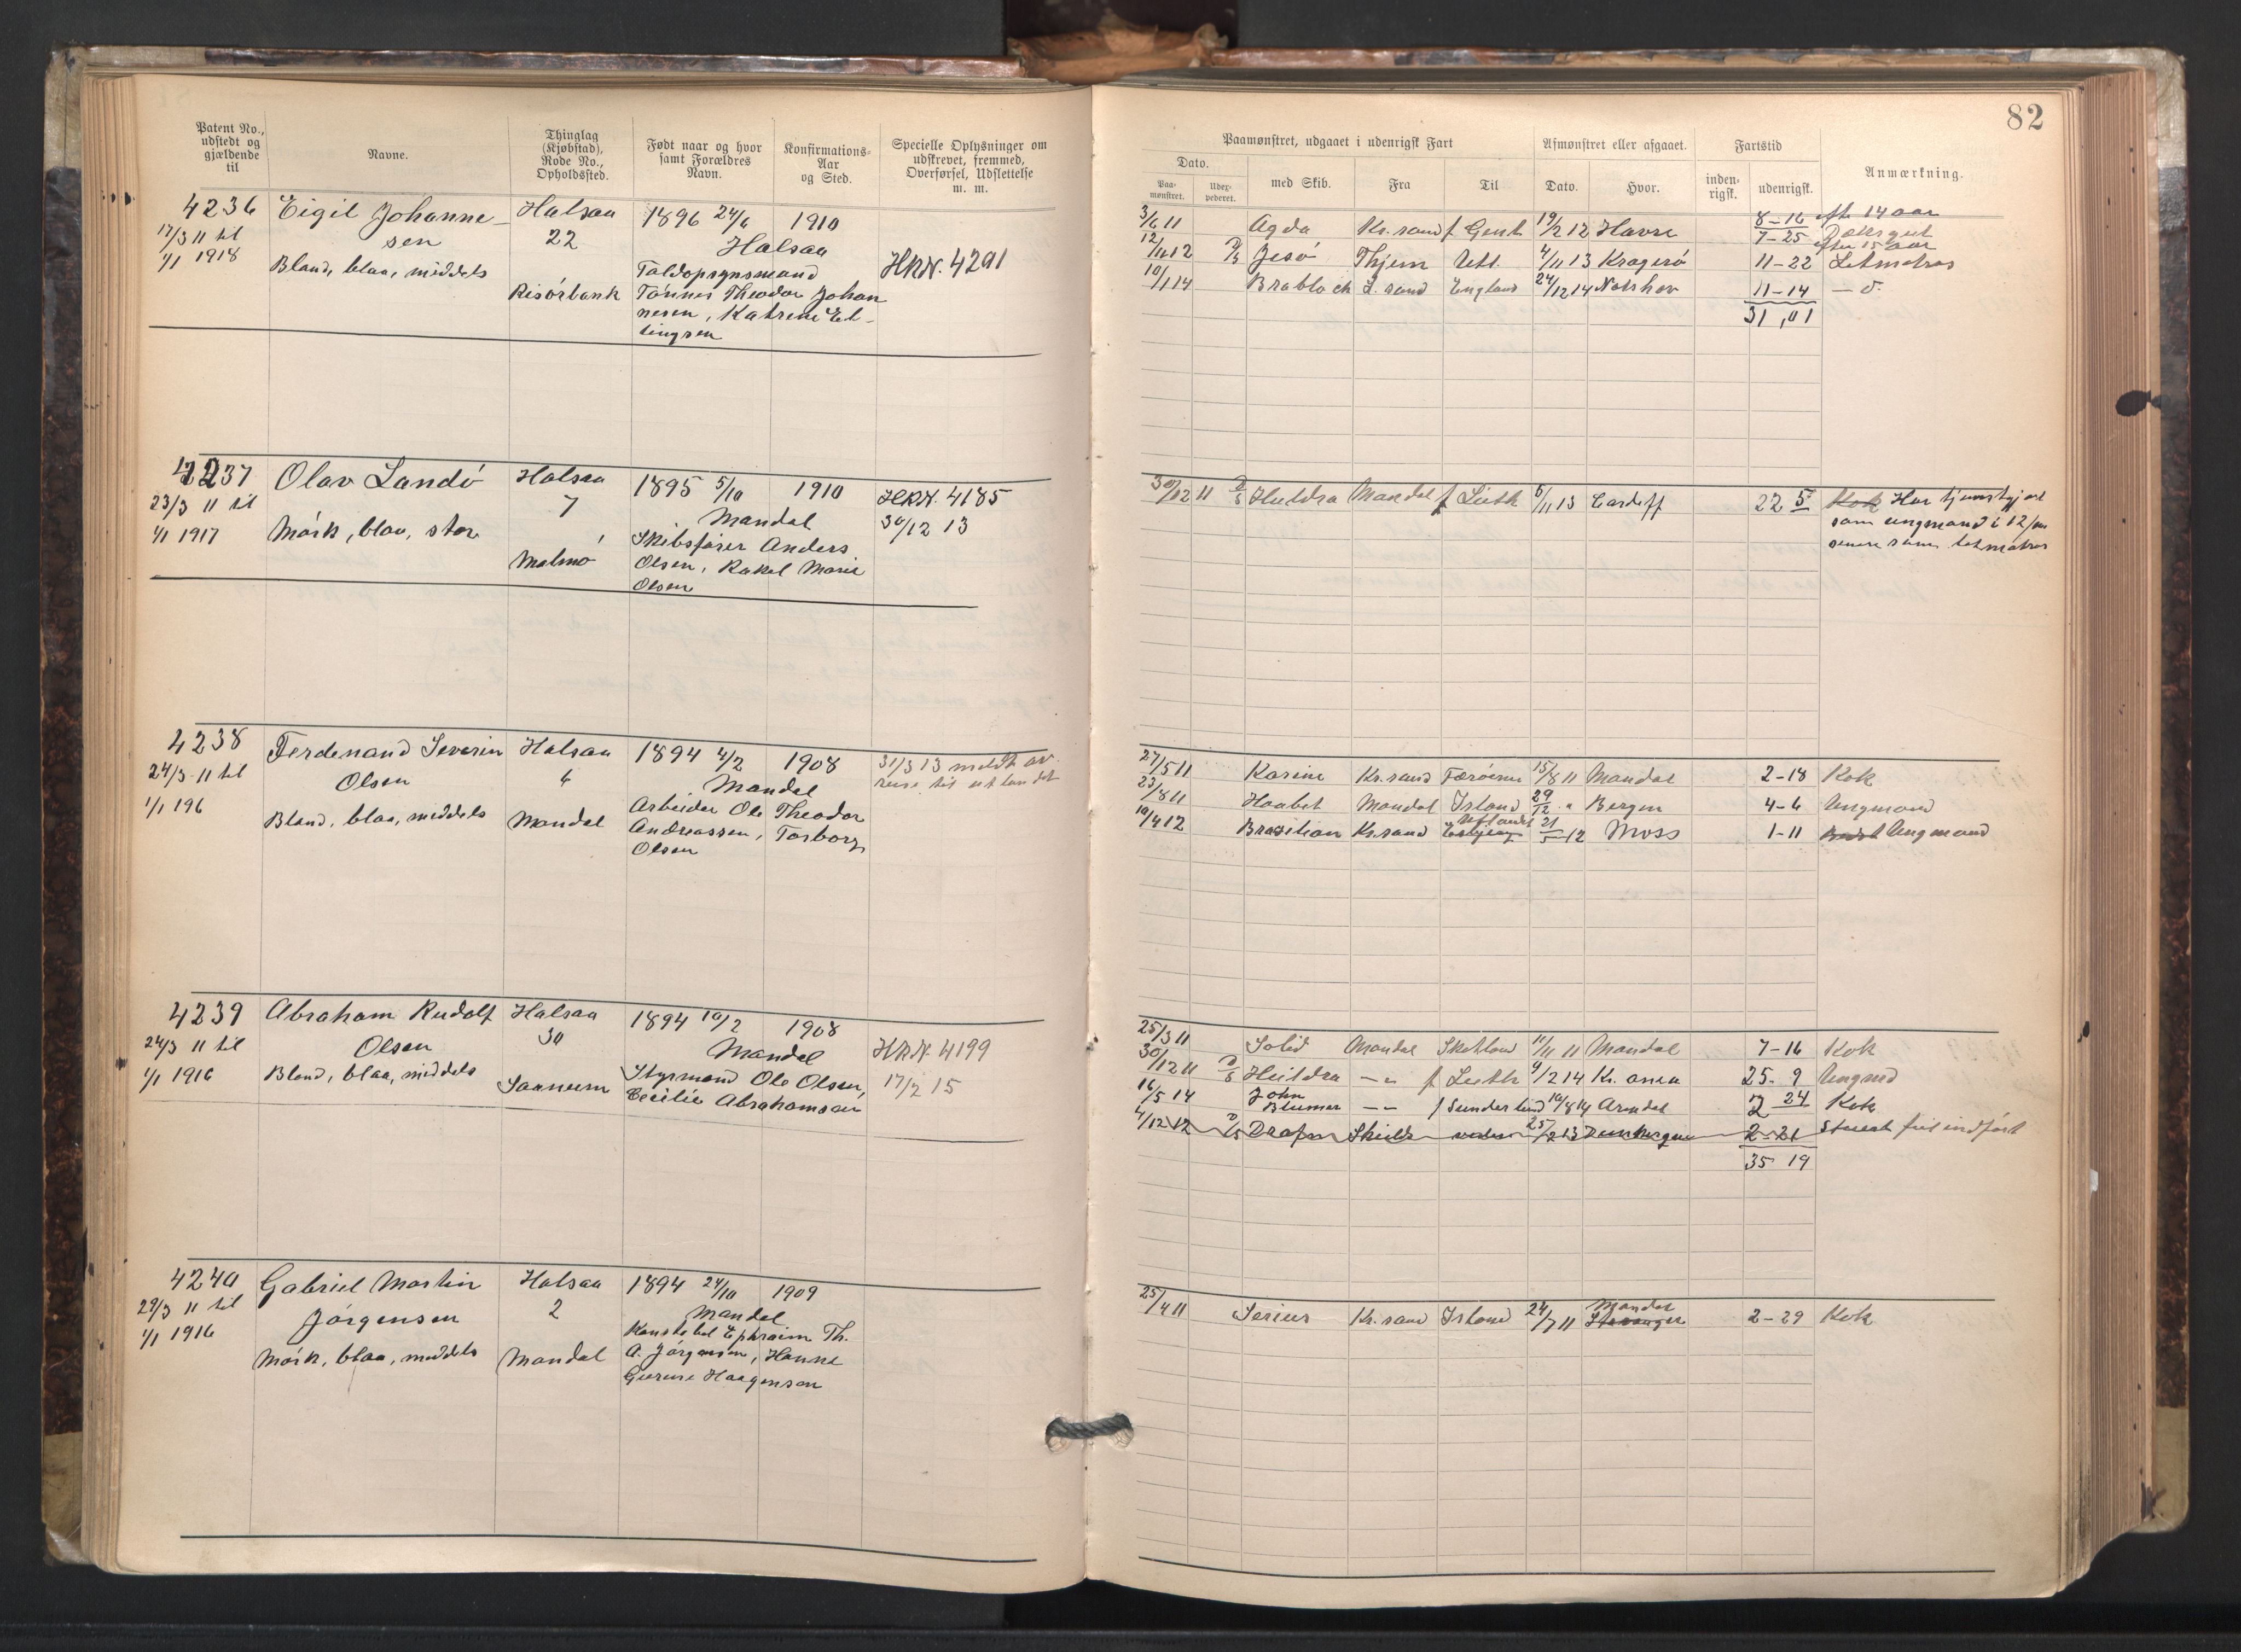 82
Patent No., udstedt og gjældende til
Navne.
Thinglag (Kjøbstad), Rode No., Opholdssted.
Født naar og hvor samt Forældres Navn.
Konfirmations-Aar og Sted.
Specielle Oplysninger om udskrevet, fremmed, Overførsel, Udslettelse m. m.
Paamønstret, udgaaet i udenrigsk Fart
Afmønstret eller afgaaet.
Fartstid
Anmærkning.
Dato.
Paa-mønstret.
med Skib.
Fra
Til
Dato.
Hvor.
inden-rigsk.
udenrigsk.
4236 Eigil Johanne- Halsaa 1896 24/6 1910
17/3 11 til sen 22 Halsaa
1/1 1918 Blond, blaa, middels Toldopsynsmand HRN. 4291
Risörbank Tönnes Theodor Johan
nesen, Katrine El-
lingsen
3/6 11 Agda Kr.sand f Gent 19/2 12 Havre 8-16 eft. 14 aar
7-25 Dæksgut
12/11 12 D/S Jesö Thjem Utl. 4/11 13 Kragerö 11-22 efter 15 aar Letmatros
10/1 14 Brablock K.sand England 24/12 14 11-14 - d.
31,01
4237 Olav Landö Halsaa 1895 5/10 1910 HRN. 4185
23/3 11 til 7 Mandal 30/12 13
1/1 1917 Mörk, blaa, stor Skibsförer Anders
Malmö Olsen, Rakel Marie
Olsen
30/12 11 D/S Huldra Mandal f Leith 5/11 13 Cardiff 22 5 Kok Har tjenstgjort
som ungmand i 12/m
senere som letmatros
4238 Ferdenand Severin Halsaa 1894 4/2 1908 31/3 13 meldt av-
24/3 11 til Olsen 6 Mandal reise til utlandet
1/1 196 Arbeider Ole Theodor
Blond, blaa, middels Mandal Andreassen, Torborg
Olsen
27/5 11 Karine Kr.sand Færöerne 15/8 11 Mandal 2-18 Kok
23/8 11 Haabet Mandal Island 29/12 " Bergen 4-6 Ungmand
10/4 12 Brazilian Kr.sand 21/5 12 Moss 1-11 Ungmand
4239 Abraham Rudolf Halsaa 1894 10/2 1908
24/3 11 til Olsen 30 Mandal HRN. 4199
1/1 1916 Blond, blaa, middels Styrmand Ole Olsen, 17/2 15
Saanum Cecilie Abrahamsen
25/3 11 Solid Mandal Shetland 10/11 11 Mandal 7-16 Kok
30/12 11 D/S Huldra -"- f Leith 9/2 14 Kr.ania 25-9 Ungmd
16/5 14 John Blumer -"- f Sunderland 10/8 14 Arendal 2 24 Kok
4/12 12 D/S 25/2 13 2-21 Stuert feil indfört
35 19
4240 Gabriel Martin Halsaa 1894 24/10 1909
29/3 11 til Jörgensen 2 Mandal
1/1 1916 Konstabel Ephraim Th.
Mörk, blaa, middels Mandal A. Jörgensen, Hanne
Gurine Haagensen
25/4 11 Serius Kr.sand Island 24/7 11 Mandal Stavanger 2-29 Kok